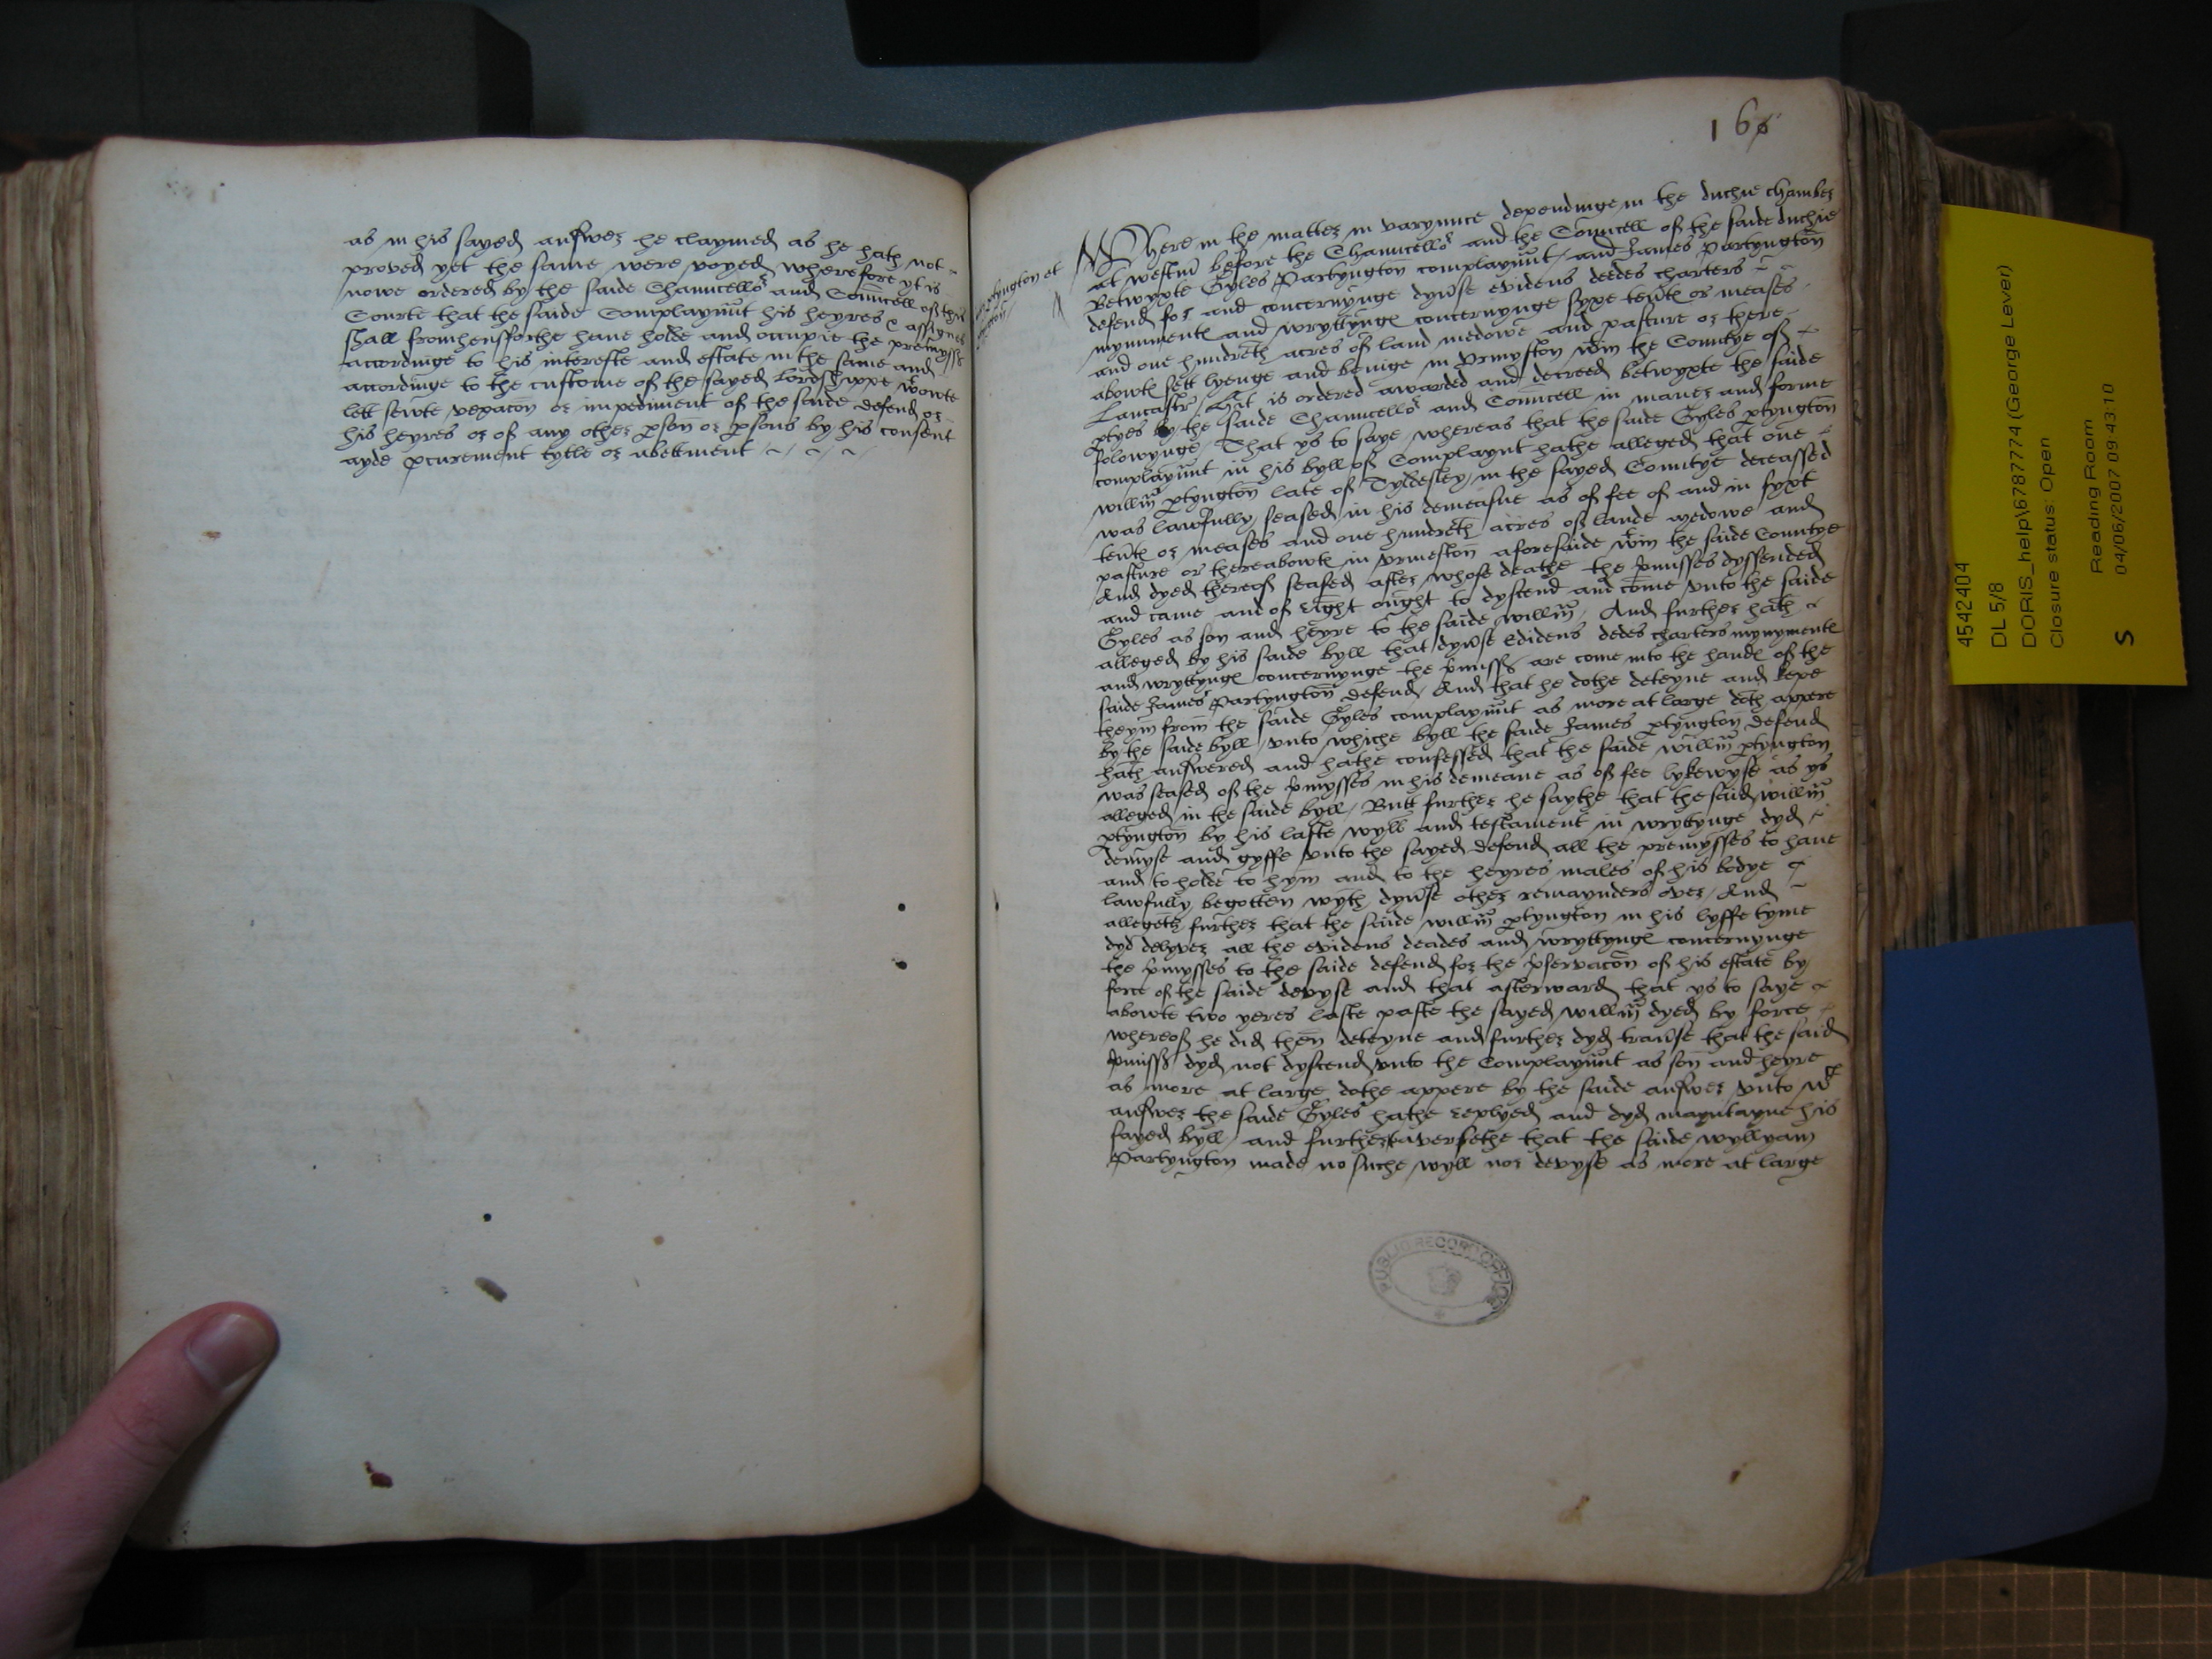 as in his sayed answer he claymed as he hath not
proved yet the same were voyed wherefore yt is
nowe ordered by the saide Chauncellor and Councell of this
Courte that the saide Complaynnt his heyres & assignes
shall fromhensfforthe have holde and occupie the premyss
accordinge to his intereste and estate in the same and
accordinge to the custome of the sayed Lordshyppe wtowte
lett sewte vexacon or impediment of the saide defend or
his heyres or of any other pson or psons by his consent
ayde pcurement tytle or abettment
ptyngton et
160
Where in the matter in varyunce dependinge in the duchie chamber
at westm before the Chauncellor and the Councell of the saide duchie
Betwyxte Gyles Partyngton complaynnt and James Partyngton
defend for and concernynge dyvse evidens deedes charters
mynuments and wryttyngs concernynge syxe tents or meases
and one hundreth acres of land medowe and pasture or there
abowts sett lyenge and beinge in Urmyston wtin the Countye of
Lancastr. Hit is ordered awarded and decreed betwyxte the saide
ptyes by the saide Chauncellor and Councell in maner and forme
folowynge / That ys to saye whereas that the saide Gyles ptyngton
complaynnt in his byll of Complaynt hathe alleged that one
willm ptyngton late of Tyldesley in the sayed Countye deceassed
was lawfully seased in his demeasne as of fee of and in syxe
tents or meases and one hundreth acres of lande medowe and
pasture or thereabowts in Urmeston aforesaide wtin the saide Countye
And dyed thereof seased after whose deathe the pmisses dyssended
and came and of right ought to dyscend and come unto the saide
Gyles as son and heyre to the saide willm / And further hath
alleged by his saide byll that dyvse evidens dedes charters mynyments
and wryttyngs concernynge the pmisss are come into the hands of the
saide James Partyngton defend / And that he dothe deteyne and kepe
theym from the saide Gyles complaynnt as more at large doth appere
by the saide byll / unto whiche byll the saide James ptyngton defend
hath answered and hathe confessed that the saide willm ptyngton
was seased of the pmysses in his demeane as of fee lykewyse as ys
alleged in the saide byll / Butt further he saythe that the said willm
ptyngton by his laste wyll and testament in wryttynge dyd
demyse and gyffe unto the sayed defend all the premysses to have
and to holde to hym and to the heyres males of his bodye
lawfully begotten wyth dyvse other remaynders over / And
allegeth further that the saide willm ptyngton in his lyffe tyme
dyd delyver all the evidens deades and wryttyngs concernynge
the pmysses to the saide defend for the pservacon of his estate by
force of the saide devyse and that afterward that ys to saye
abowte two yeres laste paste the sayed willm dyed by force
whereof he did then deteyne and further dyd travse that the said
pmisss dyd not dyscend unto the Complaynnt as son and heyre
as more at large dothe appere by the saide answer unto wch
answer the saide Gyles hathe replyed and dyd mayntayne his
sayed byll / and further traversethe that the saide wyllyam
Partyngton made no suche wyll nor devyse as more at large
PUBLIC RECORD OFFICE
4542404
DL 5/8
DORIS_help\6787774 (George Lever)
Closure status: Open
Reading Room
S 04/06/2007 09:43:10